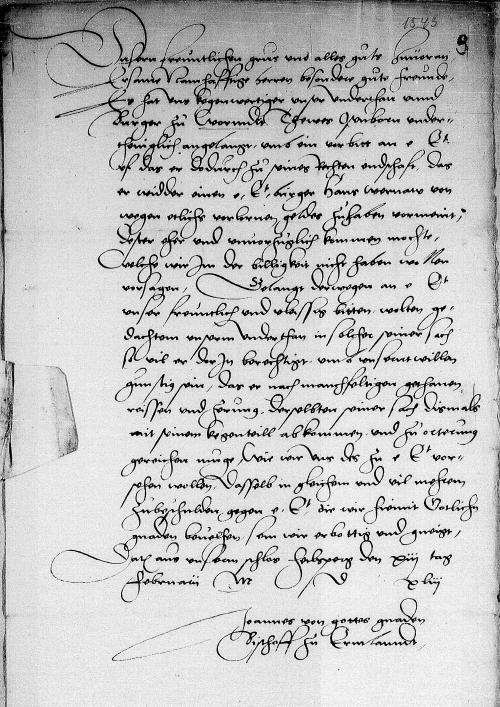 1543
Unsern freuntlichen grus und alles gute zuvoran
Ersame Namhafftige herren besondere gute freunde
Es hat uns kegenwertiger unser underthan unnd
Burger zu Wormdit Thewes under-
theniglich angelangt, umb ein vorbitt an e Et
uf das er dodurch zu seines rechten endschaft, das
er widder einen e. Et. burger Hans von
wegen etlichs geldes zuhaben vormeint,
dester eher und unvorzuglich kommen mochte,
Welchs wir Im der billigkeit nicht haben wollen
vorsagen, Gelangt derwegen an e Et
unser freuntlich und vleissig bitten, wolten ge-
dachtem unserm underthan in solcher seiner sach
so vil er der In berechtigt, umb unsernt willen
gunstig sein, das er nach manchfeltigen gethanen
reissen und zerung, derselbten seiner sach dismals
mit seinem kegenteill abkommen, und zu orterung
gereichen muge, Wie wir uns des zu e Et vor-
sehen wollen, Dasselb in gleichem und vil mehrem
zubeschulden gegen e. Et die wir hiemit Gotlichen
gnaden bevelhen, sein wir erbottig und gneigt,
Dat aus unserm schlos Helsperg den xiii tag
Februarii M D xliii
Joannes von gottes gnaden
Bischoff zu Ermlanndt